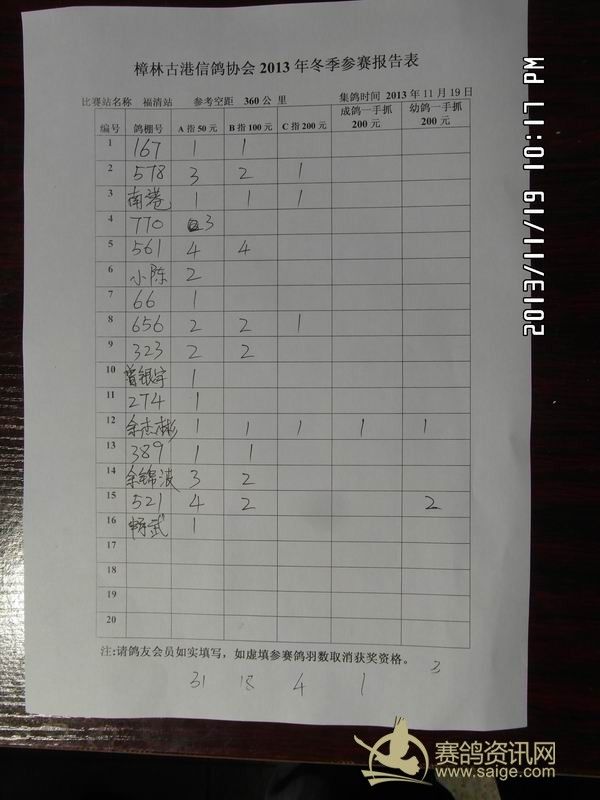 樟林古港信鸽协会 2013 年冬季参赛报告表
比赛站名称 福清站 参考空距 360公 里 集鸽时间 2013 年 11 月 19 日
编号 鸽棚号 A 指 50 元 B 指 100 元 C 指 200 元 成鸽一手抓 200 元 幼鸽一手抓 200 元
1 167 1 1
2 578 3 2 1
3 南港 1 1 1
4 770 3
5 561 4 4
6 小陈 2
7 66 1
8 656 2 2 1
9 323 2 2
10 曾银宇 1
11 274 1
12 余杰彬 1 1 1 1 1
13 389 1 1
14 余锦波 3 2
15 521 4 2 2
16 武 1
17
18
19
20
注:请鸽友会员如实填写，如虚填参赛鸽羽数取消获奖资格。
31 18 4 1 3
2013/11/19 10:17 PM
赛鸽资讯网
www.saige.com